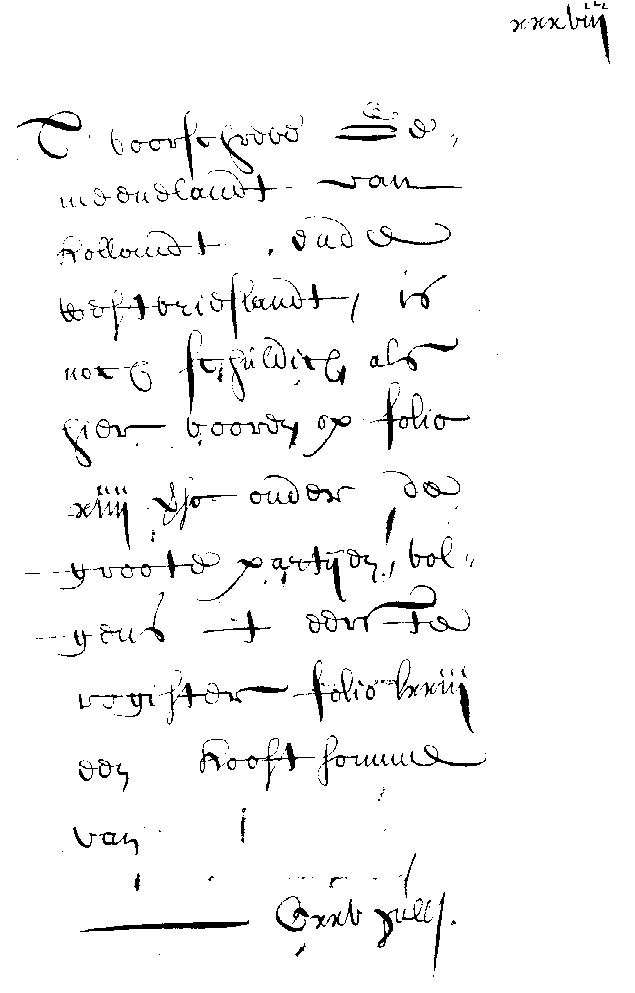 xxxviij
T voorschreve = e„
meenelandt van
Hollandt, ende
westvrieslandt, is
noch schuldich, als
hier vooren op folio
xiiij onder de
groote partijen, vol„
gens t eerste
register folio lxxiij
een Hooft somme
van
Cxxv gull.